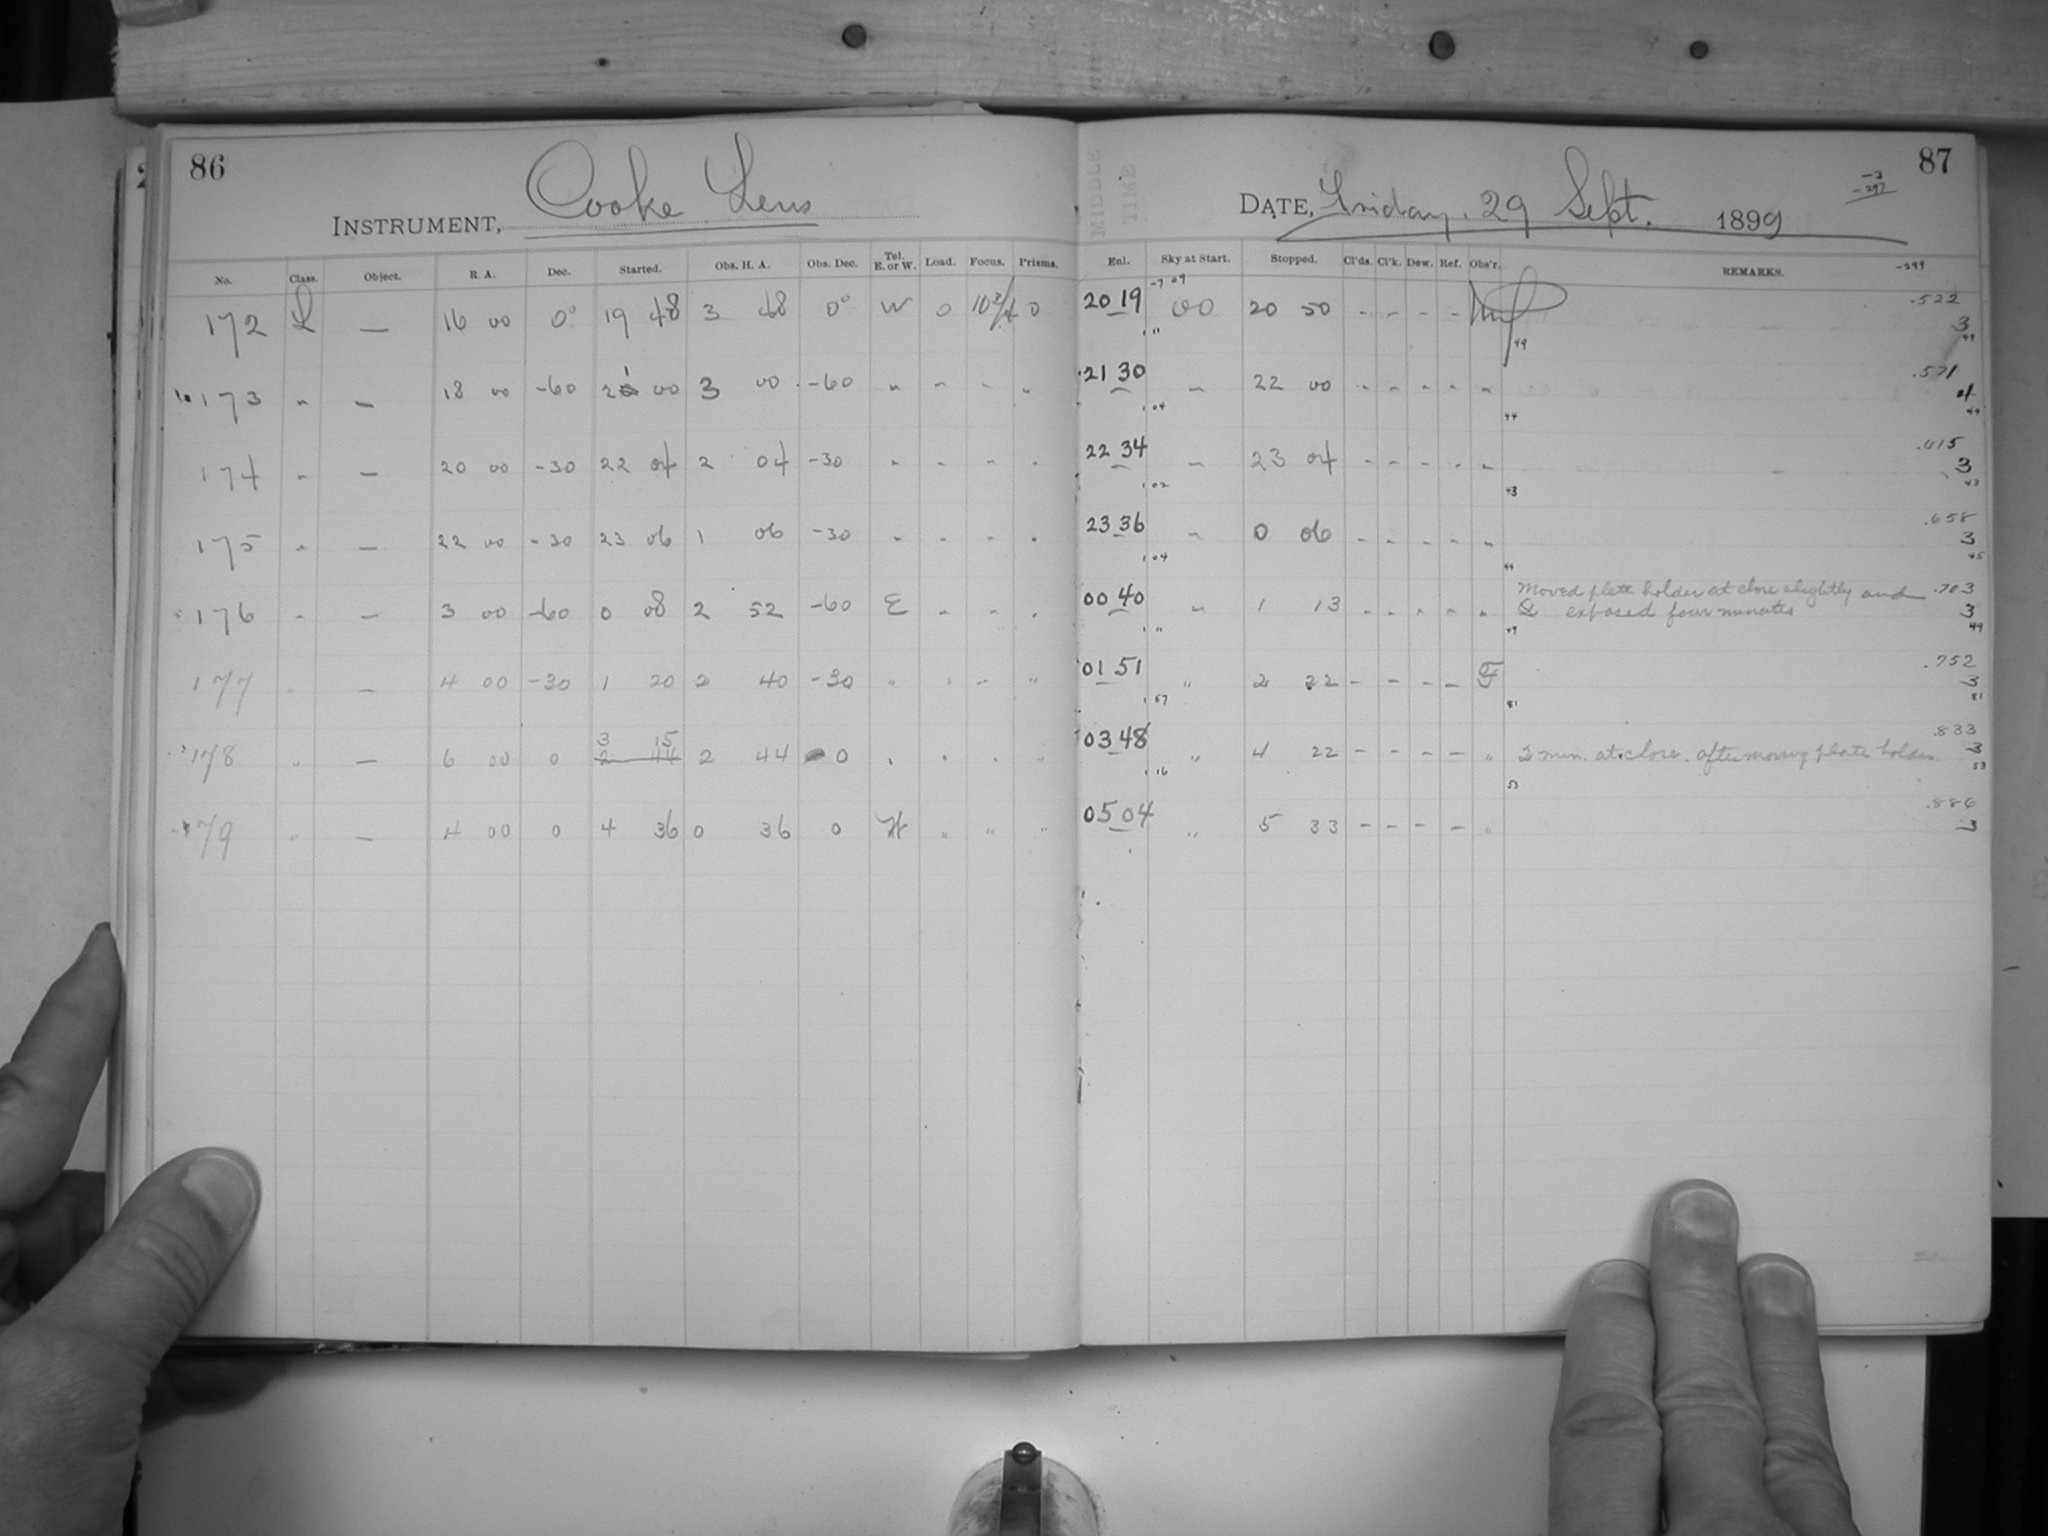 86
Cooke Lens
INSTRUMENT,
No. Class. Object. R. A. Dec. Started. Obs. H. A. Obs. Dec. Tel. E. or W. Load. Focus. Prisms.
172 L — 16 00 0° 19 48 3 48 0° W 0 10 3/4 0
173 " — 18 00 -60 21 00 3 00 -60 " " " "
174 " — 20 00 -30 22 04 2 04 -30 " " " "
175 " — 22 00 -30 23 06 1 06 -30 " " " "
176 " — 3 00 -60 0 08 2 52 -60 E " " "
177 " — 4 00 -30 1 20 2 40 -30 " " " "
3 15
178 " — 6 00 0 2 44 2 44 0 " " " "
179 " — 4 00 0 4 36 0 36 0 W " " "
87
MIDDLE TIME
-3
-297
DATE, Friday, 29 Sept. 1899
Enl. Sky at Start. Stopped. Cl'ds. Cl'k. Dew. Ref. Obs'r. REMARKS. -299
-7 09
20 19 00 20 50 - - - - .522
3
49 49
21 30 " 22 00 - - - - " .571
4
04 44 44
22 34 " 23 04 - - - - " .615
3
02 43 43
23 36 " 0 06 - - - - " .658
3
04 44 45
Moved plate holder at close slightly and .703
00 40 " 1 13 - - - - " & exposed four minutes 3
49 49
01 51 " 2 22 - - - - F .752
3
57 81 81
.833
03 48 " 4 22 - - - - " 2 min. at close. after moving plate holder 3
16 53 53
.886
05 04 " 5 33 - - - - " 3